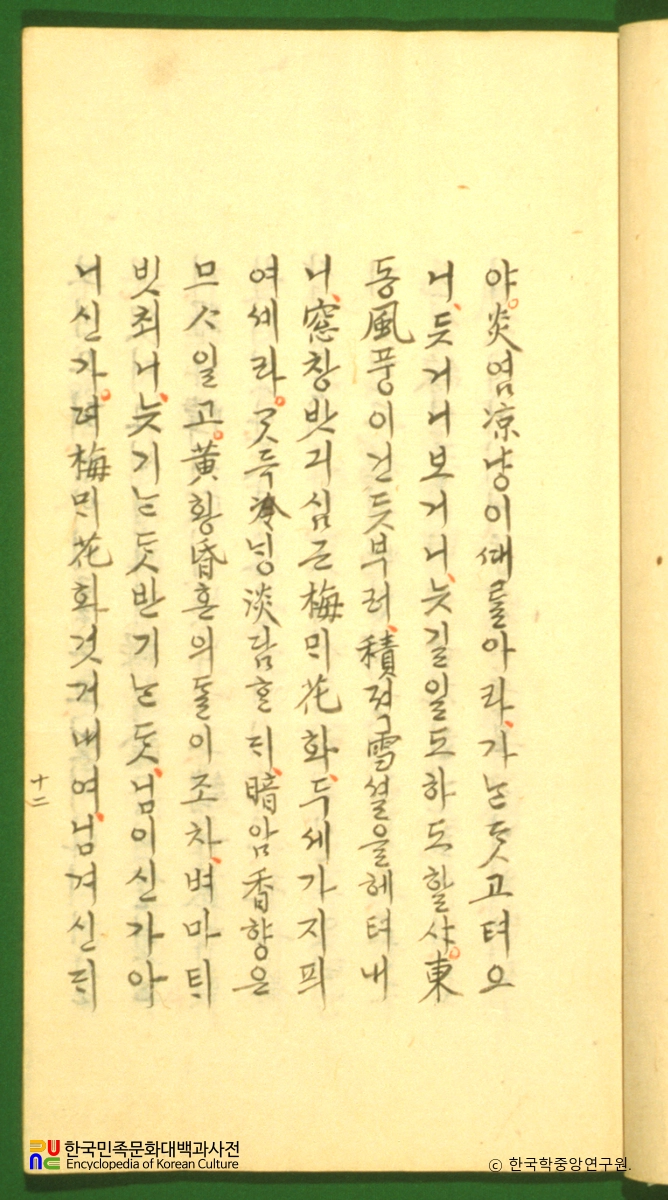 야。炎염凉냥이ᄣᅢ를아라、가ᄂᆞᆫᄃᆞᆺ고텨오
니、듯거니보거니、늣길일도하도할샤。東
동風풍이건듯부러、積젹雪셜을헤텨내
니、窓창밧긔심근梅ᄆᆡ花화、두세가지픠
여세라。ᄀᆞᆺ득冷닝淡담ᄒᆞᆫᄃᆡ、暗암香향은
므ᄉᆞ일고。黃황昏혼의ᄃᆞᆯ이조차、벼마ᄐᆡ
빗최니、늣기ᄂᆞᆫᄃᆞᆺ반기ᄂᆞᆫᄃᆞᆺ、님이신가아
니신가。뎌梅ᄆᆡ花화것거내여、님겨신ᄃᆡ
十二
한국민족문화대백과사전
Encyclopedia of Korean Culture
© 한국학중앙연구원.